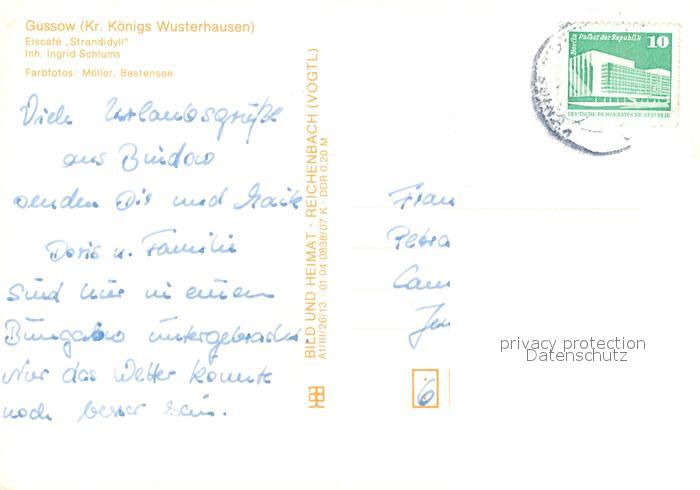 Gussow (Kr. Königs Wusterhausen)
Eiscafé „Strandidyll"
Inh. Ingrid Schlums
Farbfotos: Möller, Bestensee
Viele Urlaubsgrüße
aus Bindow
senden Dir und Maik
Doris u. Familie
Sind hier in einem
Bungalow untergebracht.
Nur das Wetter könnte
noch besser sein.
BILD UND HEIMAT · REICHENBACH (VOGTL)
A1/III/26/13 01 04 0838/07 K DDR 0,20 M
Berlin Palast der Republik
10
DEUTSCHE DEMOKRATISCHE REPUBLIK
Frau
Petra
6
privacy protection
Datenschutz